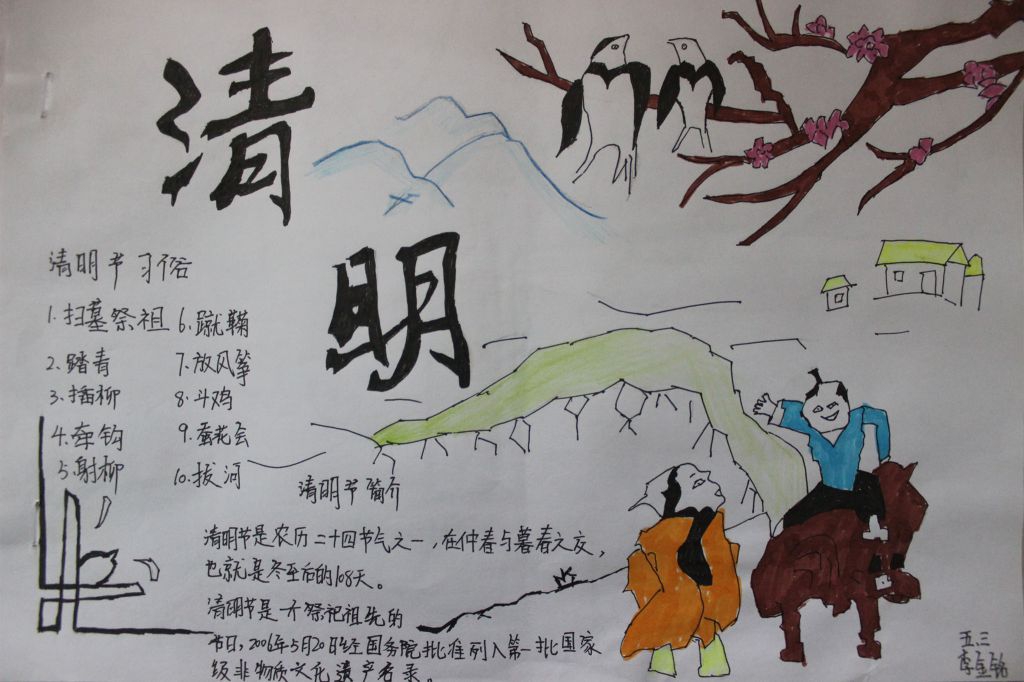 清
明
清明节习俗
1. 扫墓祭祖 6. 蹴鞠
2. 踏青 7. 放风筝
3. 插柳 8. 斗鸡
4. 牵钩 9. 蚕花会
5. 射柳 10. 拔河
清明节简介
清明节是农历二十四节气之一，在仲春与暮春之交，
也就是冬至后的108天。
清明节是一个祭祀祖先的
节日，2006年5月20日经国务院批准列入第一批国家
级非物质文化遗产名录。
五.三
李金铭